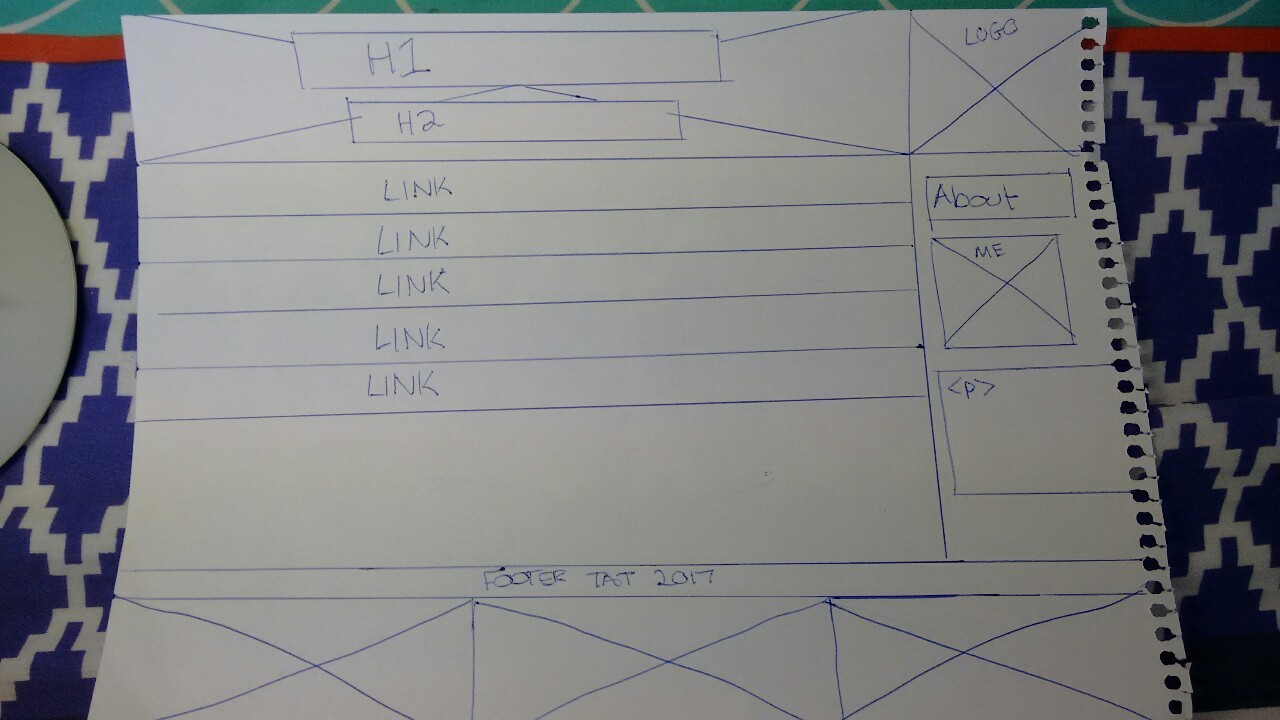 H1
LOGO
H2
LINK
LINK
LINK
LINK
LINK
About
ME
<p>
FOOTER TAT 2017